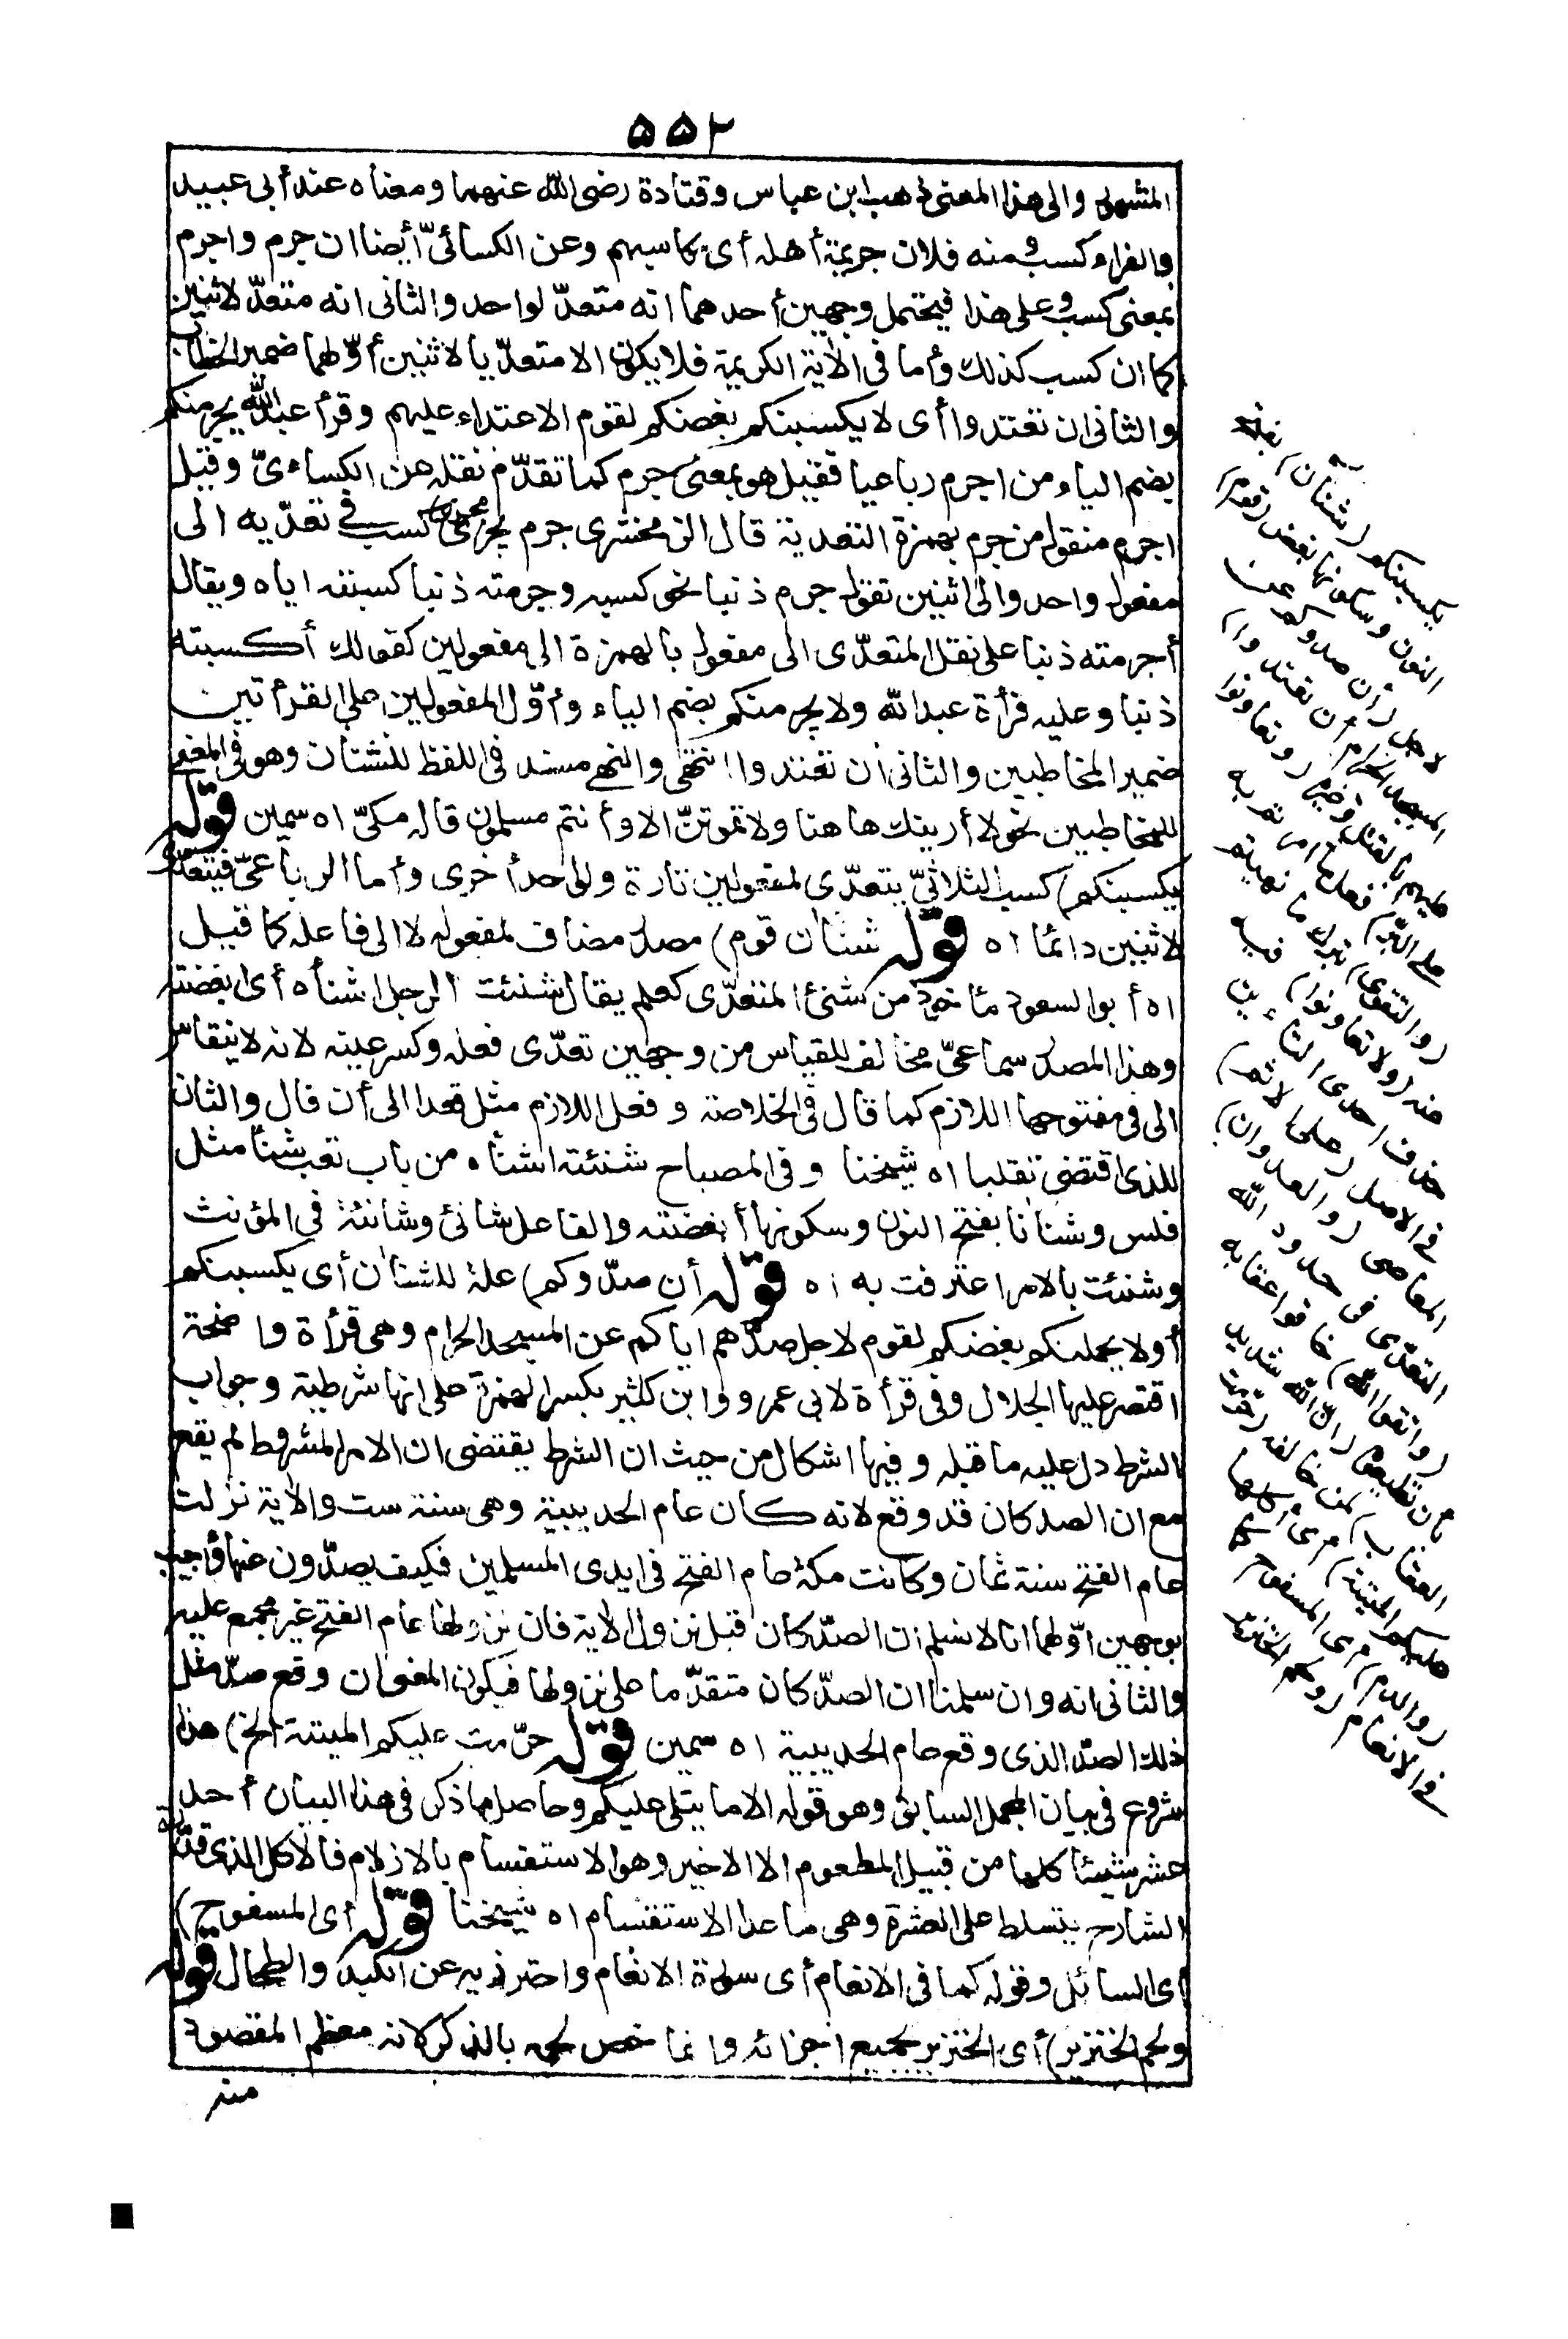 ٥٥٢
المشهور والى هذا المعنى ذهب ابن عباس وقتادة رضى الله عنهما ومعناه عند أبى عبيد
والفراء كسب ومنه فلان جريمة أهله أى كاسبهم وعن الكسائىّ أيضا ان جرم واجرم
بمعنى كسب وعلى هذا فيحتمل وجهين أحدهما انه متعدّ لواحد والثانى انه متعدّ لاثنين
كما ان كسب كذلك وأما فى الآية الكريمة فلا يكون الا متعدّيا لاثنين أوّلهما ضمير الخطاب
والثانى ان تعتدوا أى لا يكسبنكم بغضكم لقوم الاعتداء عليهم وقرأ عبد الله يجرمنكم
بضم الياء من اجرم رباعيا فقيل هو بمعنى جرم كما تقدّم نقله عن الكساءىّ وقيل
اجرم منقول من جرم بهمزة التعدية قال الزمخشرى جرم يجرى مجرى كسب فى تعدّيه الى
مفعول واحد والى اثنين تقول جرم ذنبا نحو كسبه وجرمته ذنبا كسبته اياه ويقال
أجرمته ذنبا على نقل المتعدّى الى مفعول بالهمزة الى مفعولين كقولك أكسبته
ذنبا وعليه قرأة عبد الله ولا يجرمنكم بضم الياء وأوّل المفعولين على القرأتين
ضمير المخاطبين والثانى أن تعتدوا انتهى والنهى مسند فى اللفظ للشنآن وهو فى المعنى
للمخاطبين نحو لا أرينك هاهنا ولا تموتنّ الا وأنتم مسلمون قاله مكىّ اه سمين قوله
يكسبنكم) كسب الثلاثىّ يتعدّى لمفعولين تارة ولواحد أخرى وأما الرباعىّ فيتعدّى
لاثنين دائما اه قوله شنآن قوم) مصدر مضاف لمفعوله لا الى فاعله كما قيل
اه أبو السعود مأخوذ من شنئ المتعدّى كعلم يقال شنئت الرجل اشنأه أى أبغضته
وهذا المصدر سماعىّ مخالف للقياس من وجهين تعدّى فعله وكسر عينه لانه لا ينقاس
الى فى مفتوحها اللازم كما قال فى الخلاصة وفعل اللازم مثل قعدا الى أن قال والثان
للذى اقتضى تقلبا اه شيخنا وفى المصباح شنئته اشنأه من باب تعب شنأ مثل
فلس وشنآنا بفتح النون وسكونها أبغضته والفاعل شانئ وشانئة فى المؤنث
وشنئت بالامر اعترفت به اه قوله أن صدّوكم) علة للشنآن أى يكسبنكم
أو لا يحملنكم بغضكم لقوم لاجل صدّهم اياكم عن المسجد الحرام وهى قرأة واضحة
اقتصر عليها الجلال وفى قرأة لابى عمرو وابن كثير بكسر الهمزة على انها شرطية وجواب
الشرط دل عليه ما قبله وفيها اشكال من حيث ان الشرط يقتضى ان الامر المشروط لم يقع
مع ان الصد كان قد وقع لانه كان عام الحديبية وهى سنة ست والآية نزلت
عام الفتح سنة ثمان وكانت مكة عام الفتح فى ايدى المسلمين فكيف يصدّون عنها وأجيب
بوجهين اوّلهما انا لا نسلم ان الصدّ كان قبل نزول الآية فان نزولها عام الفتح غير مجمع عليه
والثانى انه وان سلمنا ان الصدّ كان متقدّما على نزولها فيكون المعنى ان وقع صدّ مثل
ذلك الصدّ الذى وقع عام الحديبية اه سمين قوله حرّمت عليكم الميتة الخ) هذا
شروع فى بيان المجمل السابق وهو قوله الا ما يتلى عليكم وحاصل ما ذكر فى هذا البيان أحد
عشر شيئا كلها من قبيل المطعوم الا الاخير وهو الاستقسام بالازلام فالاكل الذى قدّره
الشارح يتسلط على العشرة وهى ما عدا الاستقسام اه شيخنا قوله أى المسفوح)
أى السائل وقوله كما فى الانعام أى سورة الانعام واحترز به عن الكبد والطحال قوله
ولحم الخنزير) أى الخنزير بجميع اجزائه وانما خص لحمه بالذكر لانه معظم المقصود
منه
يكسبنكم (شنآن) بفتح
النون وسكونها بغض (قوم)
لاجل (أن صدوكم عن
المسجد الحرام أن تعتدوا)
عليهم بالقتل وغيره (وتعاونوا
على البرّ) فعل ما امرتم به
(والتقوى) بترك ما نهيتم
عنه (ولا تعاونوا) فيه
حذف احدى التاءين
فى الاصل (على الاثم)
المعاصى (والعدوان)
التعدّى فى حدود الله
(واتقوا الله) خافوا عقابه
بأن تطيعوه (ان الله شديد
العقاب) لمن خالفه (حرّمت
عليكم الميتة) أى أكلها
(والدم) أى المسفوح كما
فى الانعام (ولحم الخنزير